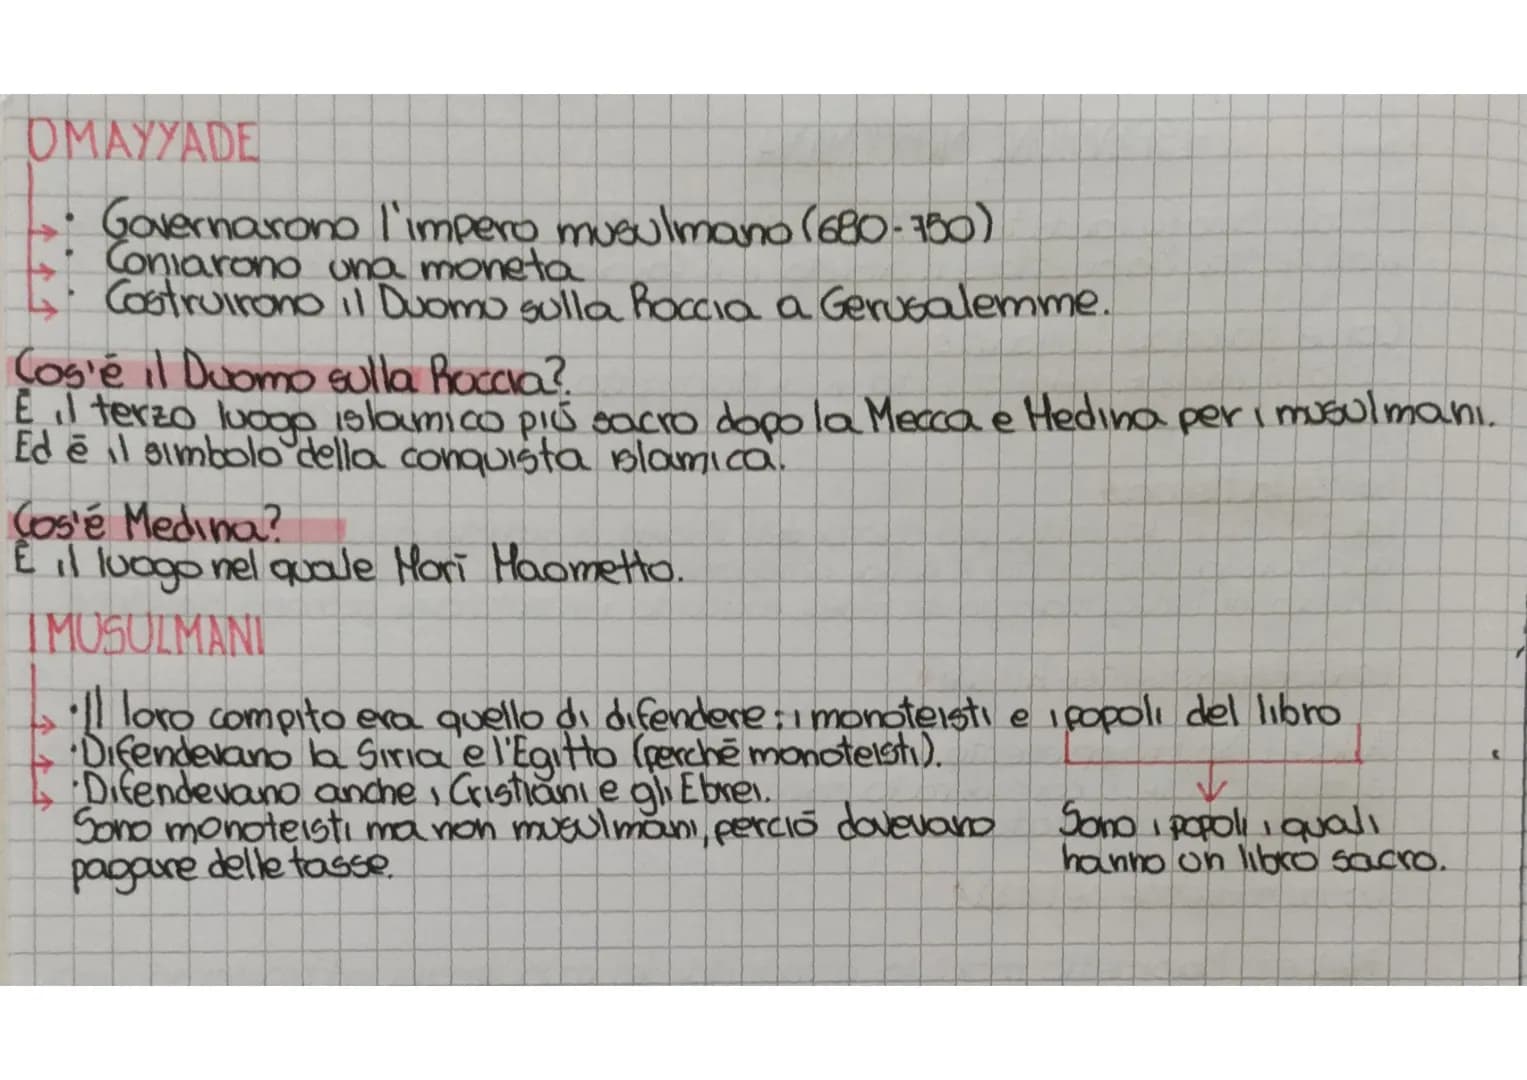 OMAYYADE
• Governarono l'impero musulmano (680-750)
• Coniarono una moneta
• Costruirono il Duomo sulla Roccia a Gerusalemme.
Cos'è il Duomo sulla Roccia?
È il terzo luogo islamico più sacro dopo la Mecca e Medina per i musulmani.
Ed è il simbolo della conquista islamica.
Cos'è Medina?
È il luogo nel quale Morì Maometto.
I MUSULMANI
• Il loro compito era quello di difendere: i monoteisti e i popoli del libro
• Difendevano la Siria e l'Egitto (perchè monoteisti).
• Difendevano anche i Cristiani e gli Ebrei.
Sono monoteisti ma non musulmani, perciò dovevano
pagare delle tasse.
Sono i popoli i quali
hanno un libro sacro.